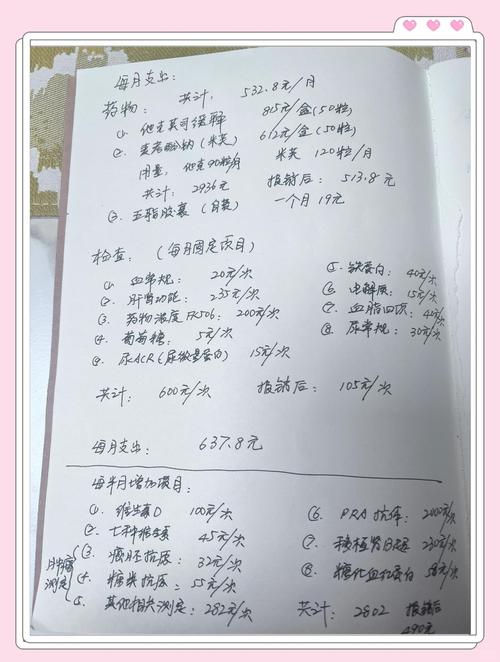 每月支出:
药物: 共计: 532.8元/月
①. 他克莫司缓释 815元/盒(50粒)
②. 麦考酚钠(米芙 612元/盒(50粒)
用量: 他克90粒/月 米芙 120粒/月
共计: 2936元 报销后: 513.8元
③. 五酯胶囊(自装) 一个月 19元
检查: (每月固定项目)
①. 血常规: 20元/次 ⑤. 铁蛋白: 40元/次
②. 肝肾功能: 235元/次 ⑥. 电解质: 15元/次
③. 药物浓度FK506: 200元/次 ⑦. 血脂四项: 40元/次
④. 葡萄糖: 5元/次 ⑧. 尿常规: 30元/次
⑨. 尿ACR(尿微量蛋白) 15元/次
共计: 600元/次 报销后: 105元/次
每月支出: 637.8元
每半月增加项目:
①. 维生素D 100元/次 ⑥. PRA抗体: 2000元/次
②. 七种维生素 45元/次 ⑦. 移植肾B超 230元/次
肿瘤测定 ③. 癌胚抗原: 32元/次 ⑧. 糖化血红蛋白 58元/次
④. 糖类抗原: 55元/次
⑤. 其他相关测定: 282元/次 共计: 2802 报销后
490元